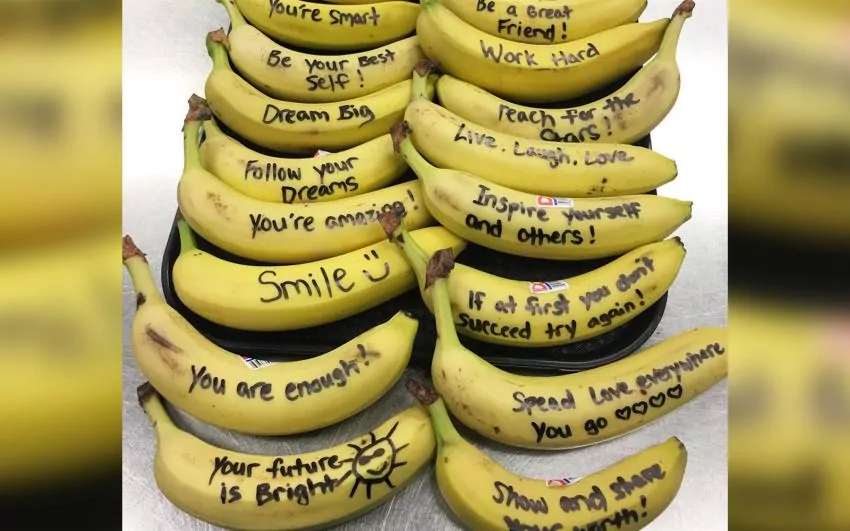 You're Smart
Be Your Best
Self!
Dream Big
Follow your
Dreams
You're amazing!
Smile
You are enough!
Your future
is Bright
Be a Great
Friend!
Work Hard
reach for the
Stars!
Live, Laugh, Love
Inspire yourself
and others!
If at first you don't
succeed try again!
Spread Love everywhere
You go ♡♡♡♡
Show and share
your worth!